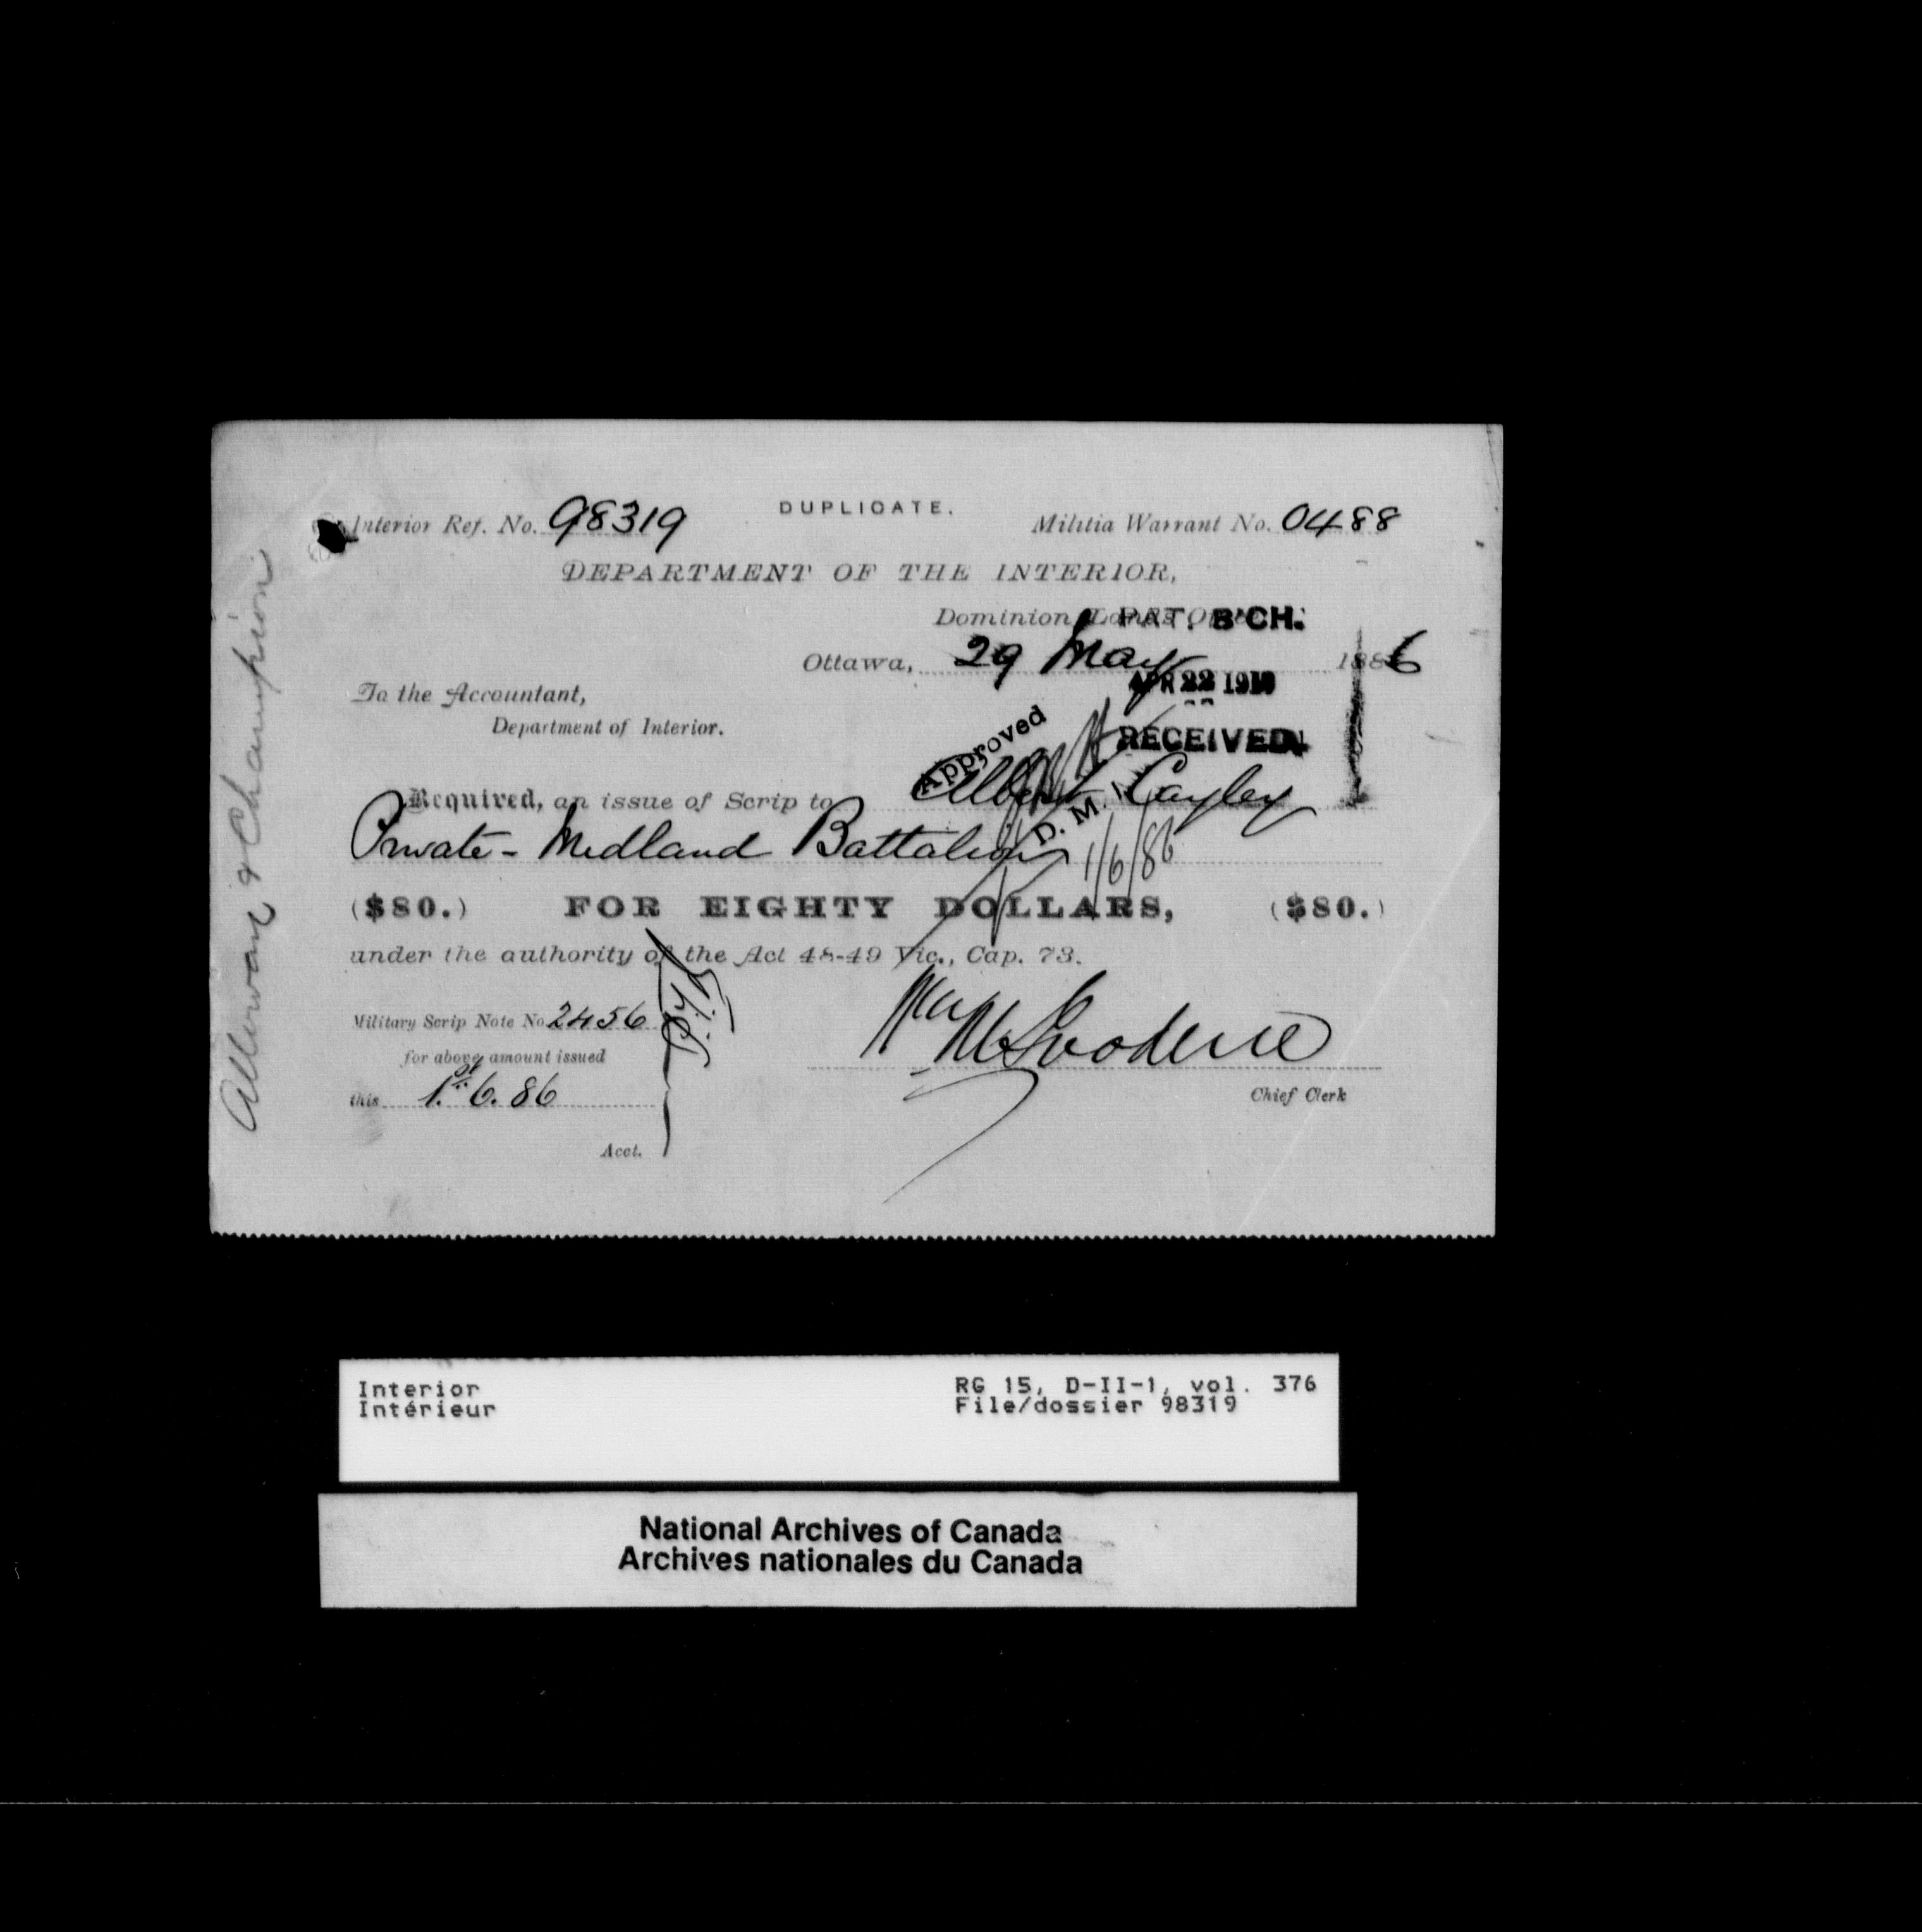 DUPLICATE.
Interior Ref. No. 98319
Militia Warrant No. 0488
DEPARTMENT OF THE INTERIOR,
Dominion Lands
PAT. B'CH.
Ottawa, 29 May 1886
APR 22 1910
RECEIVED
To the Accountant,
Department of Interior.
Approved
Required, an issue of Scrip to Albert Cayley
D. M. I.
Private - Midland Battalion
1/6/86
($80.) FOR EIGHTY DOLLARS, ($80.)
under the authority of the Act 48-49 Vic., Cap. 73.
Military Scrip Note No 2456
for above amount issued
this 1st 6. 86
Acct.
Chief Clerk
Alloway & Champion
Interior
Intérieur
RG 15, D-II-1, vol. 376
File/dossier 98319
National Archives of Canada
Archives nationales du Canada